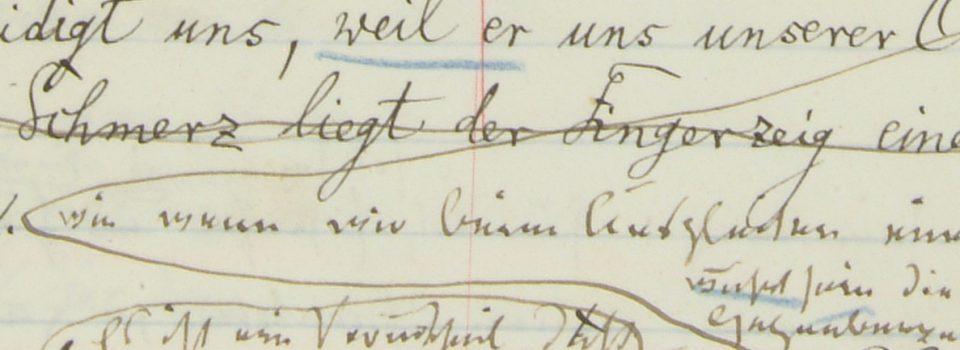 idigt uns, weil er uns unserer
Schmerz liegt der Fingerzeig eine
wie wenn wir beim Ausgleiten ein
die
Es ist ein Vorurtheil